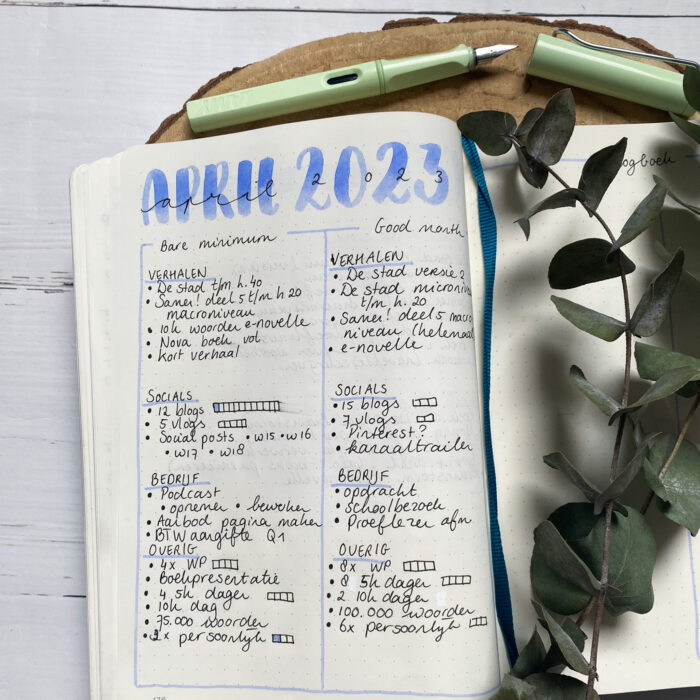 APRIL 2023
april 2023
Bare minimum
VERHALEN
• De stad t/m h. 40
• Saner! deel 5 t/m h 20
macroniveau
• 10k woorden e-novelle
• Nova boek vol
• kort verhaal
SOCIALS
• 12 blogs
• 5 vlogs
• Social posts • w15 • w16
• w17 • w18
BEDRIJF
• Podcast
• opnemen • bewerken
• Aanbod pagina maken
• BTW aangifte Q1
OVERIG
• 4x WP
• Boekpresentatie
• 4 5k dagen
• 10k dag
• 75.000 woorden
• 3x persoonlijk
Good month
VERHALEN
• De stad versie 2
• De stad microniv
t/m h. 20
• Saner! deel 5 macro
niveau (helemaal
• e-novelle
SOCIALS
• 15 blogs
• 7 vlogs
• Pinterest?
• kanaaltrailer
BEDRIJF
• opdracht
• schoolbezoek
• Proeflezen afm
OVERIG
• 8x WP
• 8 5k dagen
• 2 10k dagen
• 100.000 woorden
• 6x persoonlijk
ogboek